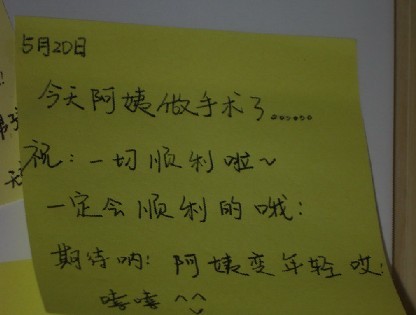 5月20日
今天阿姨做手术了......
祝:一切顺利啦~
一定会顺利的哦:
期待哟!阿姨变年轻哎!
嘻嘻^^